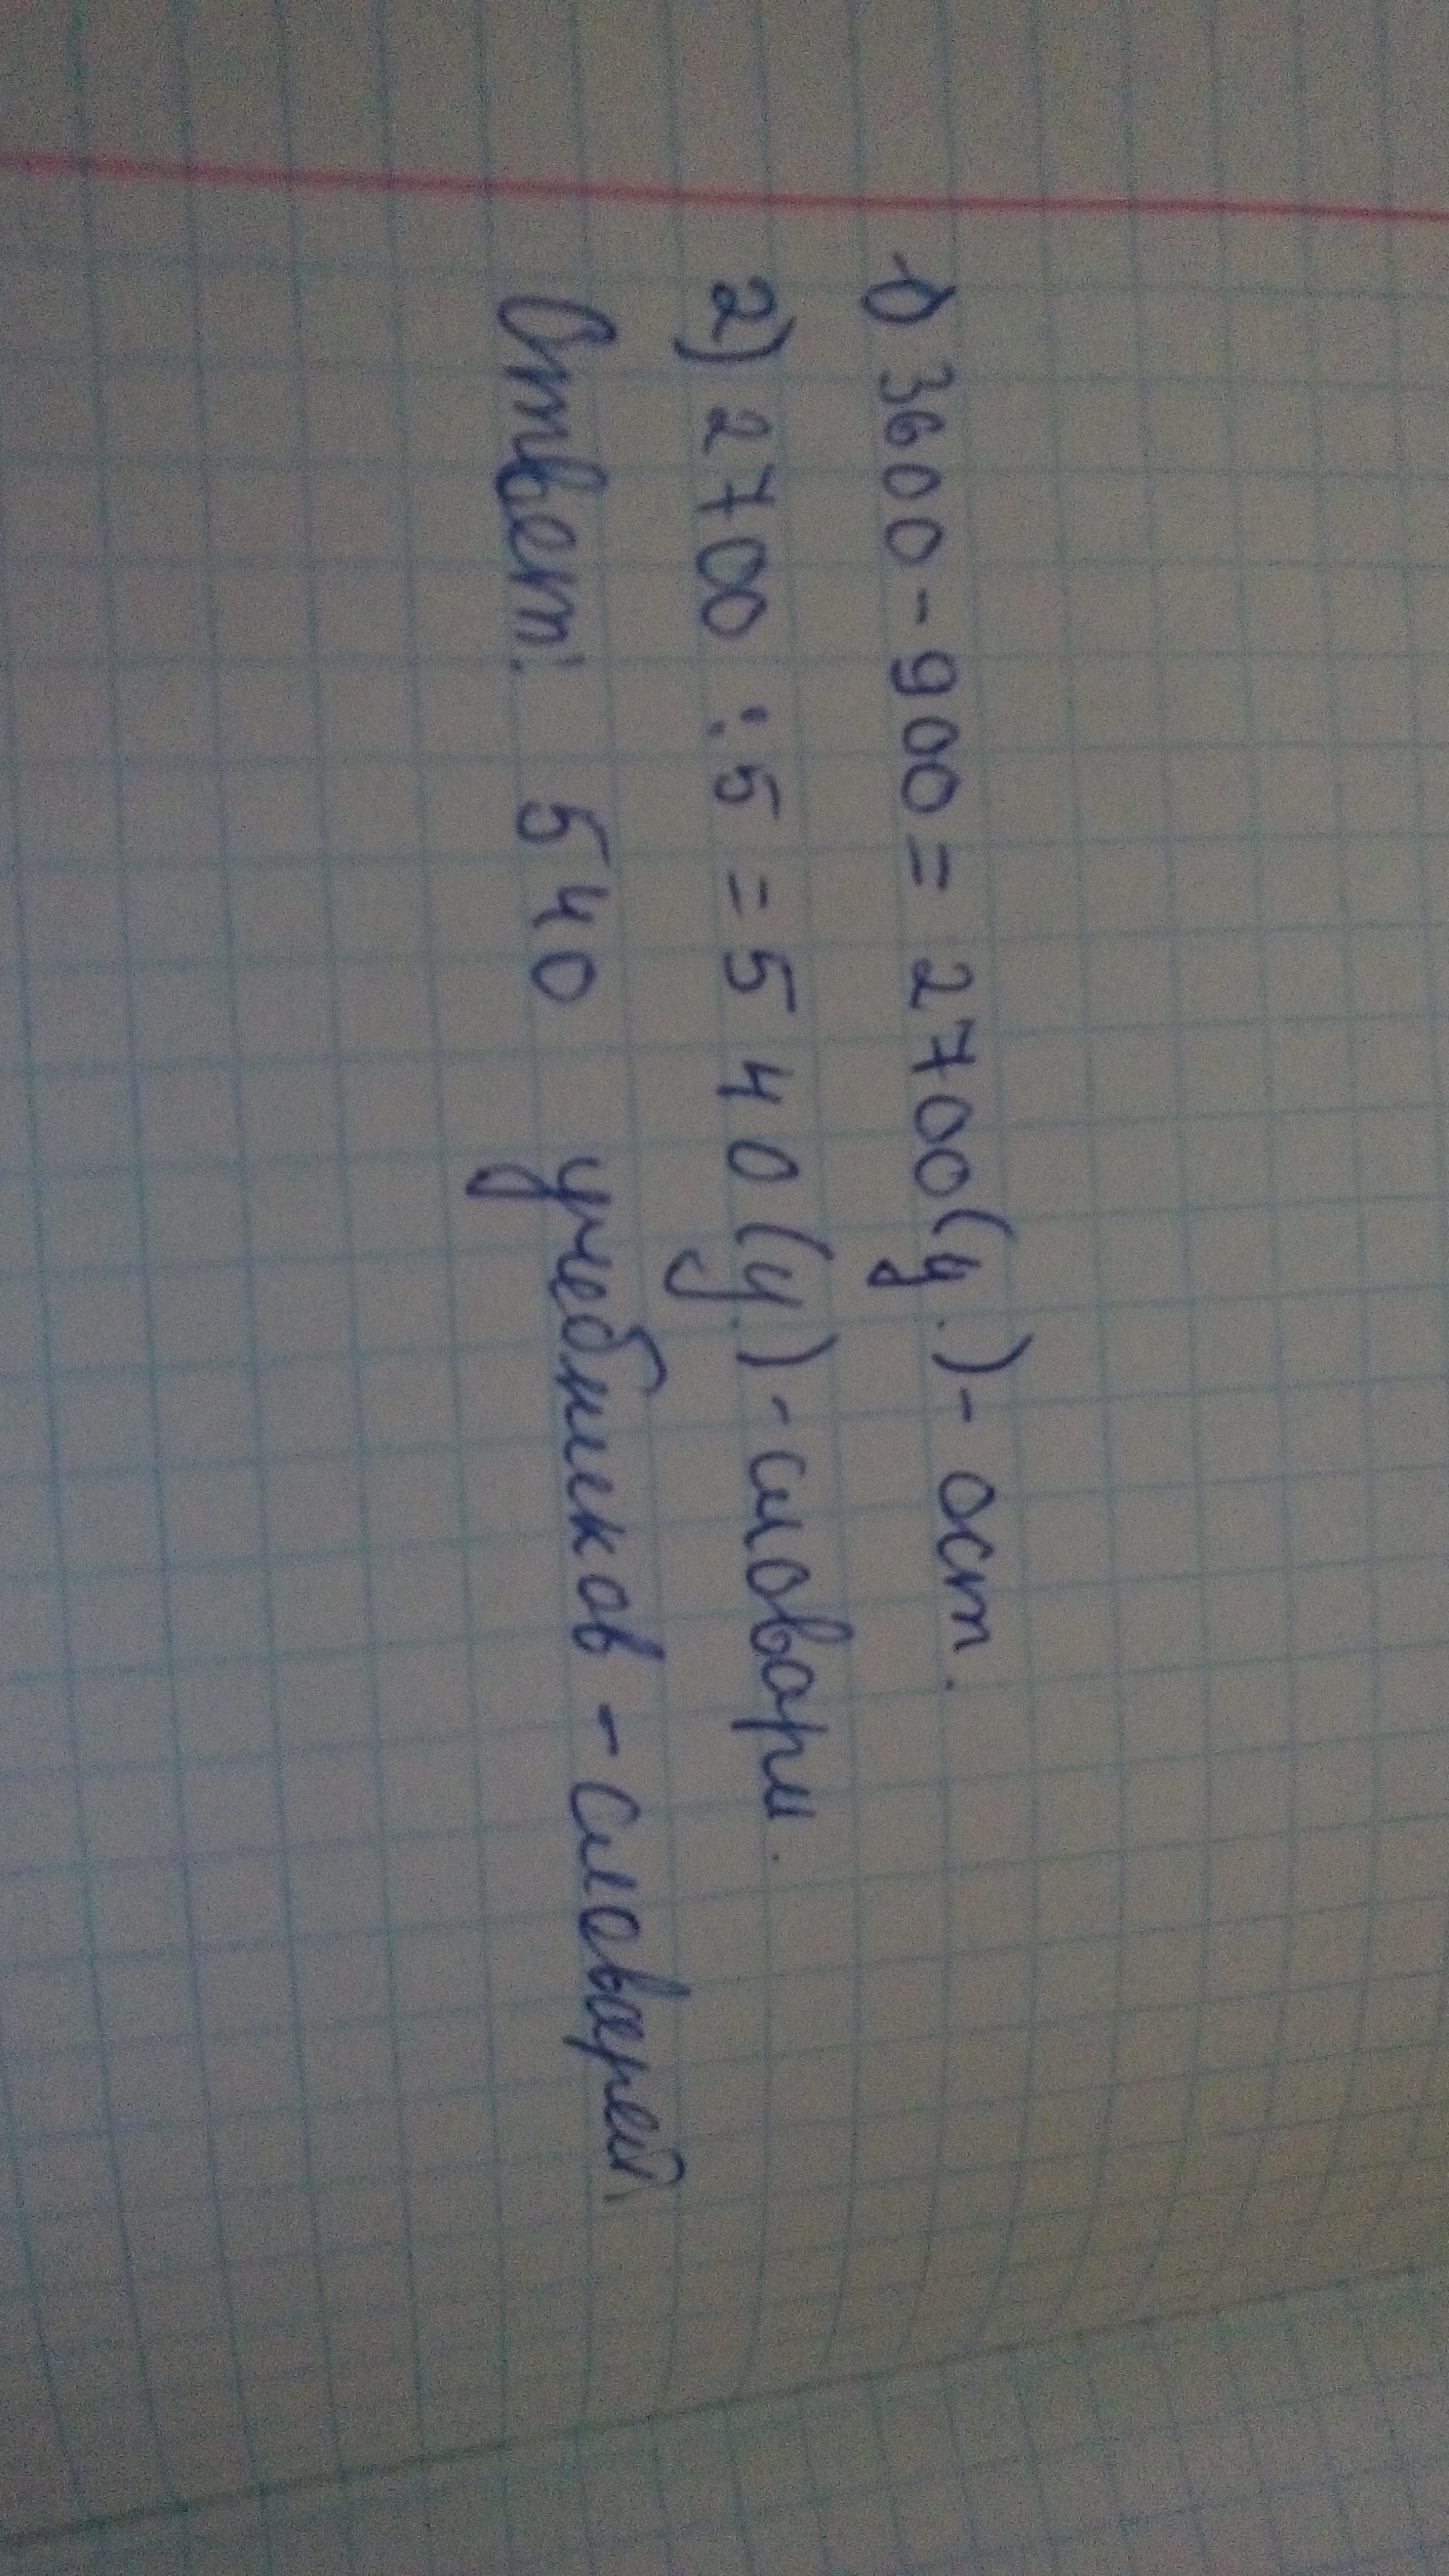 1) 3600 - 900 = 2700 (у.) - ост.
2) 2700 : 5 = 540 (у.) - словари.
Ответ: 540 учебников - словарей.